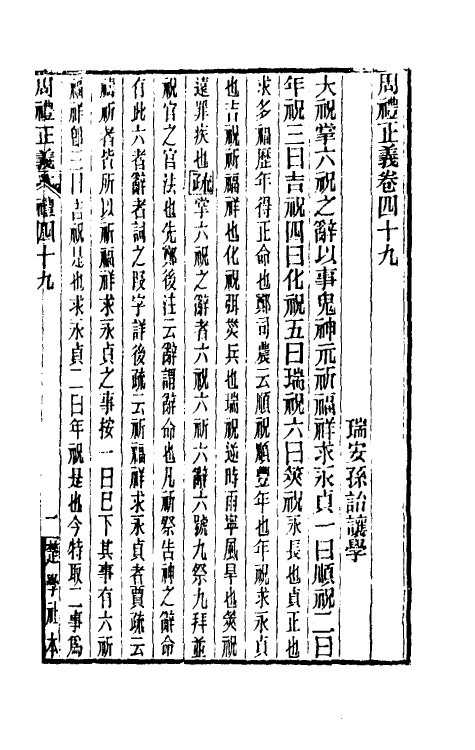 周禮正義卷四十九
瑞安孫詒讓學
大祝掌六祝之辭以事鬼神示祈福祥求永貞一曰順祝二曰
年祝三曰吉祝四曰化祝五曰瑞祝六曰筴祝永長也貞正也
求多福歷年得正命也鄭司農云順祝順豐年也年祝求永貞
也吉祝祈福祥也化祝弭災兵也瑞祝逆時雨寧風旱也筴祝
遠罪疾也疏掌六祝之辭者六祝六祈六辭六號九祭九拜並
祝官之官法也先鄭後注云辭謂辭命也凡祈祭告神之辭命
有此六者辭者詞之叚字詳後疏云祈福祥求永貞者賈疏云
禱祈者皆所以祈福祥求永貞之事按一曰已下其事有六祈
福祥卽三曰吉祝是也求永貞二曰年祝是也今特取二事爲
周禮正義 禮四十九
一
楚學社本